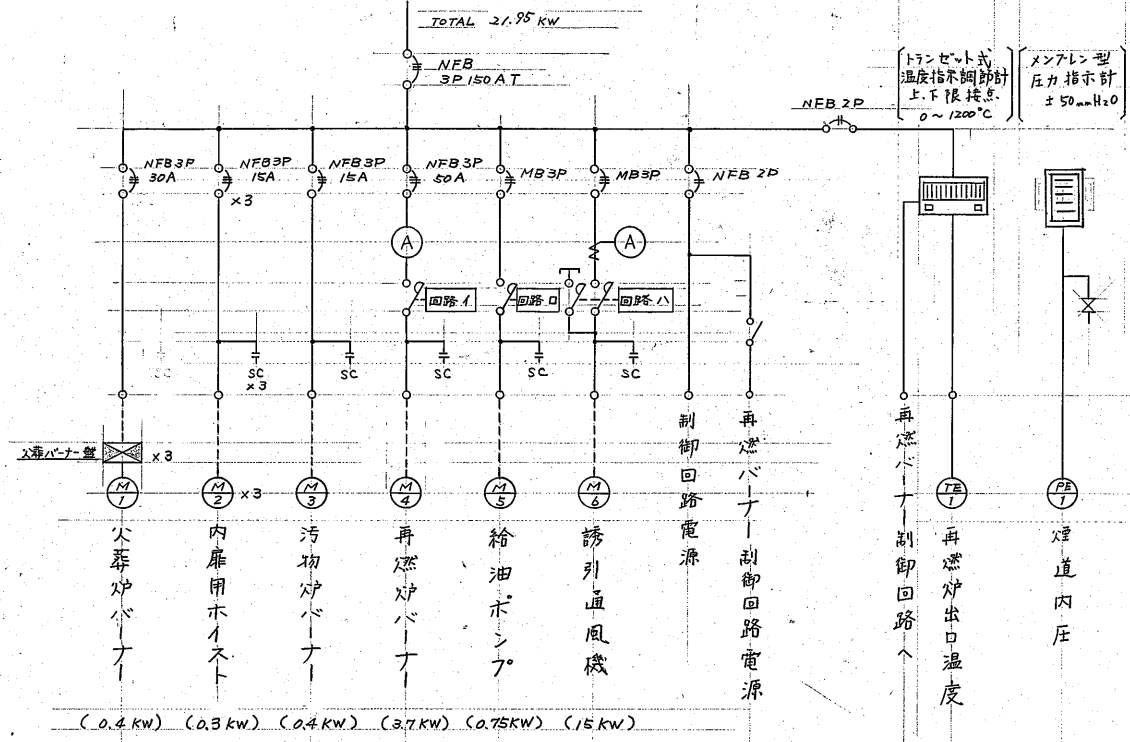 TOTAL 21.95 KW
NFB
3P 150AT
トランゼット式
温度指示調節計
上、下限接点
0～1200℃
メンブレン型
圧力指示計
±50mmH2O
NFB 2P
NFB3P
30A
NFB3P
15A
×3
NFB3P
15A
NFB3P
50A
MB3P
MB3P
NFB 2P
A
A
回路イ
回路ロ
回路ハ
SC
×3
SC
SC
SC
SC
火葬バーナー盤
×3
M
1
M
2
×3
M
3
M
4
M
5
M
6
TE
1
PE
1
火葬炉バーナー
内扉用ホイスト
汚物炉バーナー
再燃炉バーナー
給油ポンプ
誘引通風機
制御回路電源
再燃バーナー制御回路電源
再燃バーナー制御回路へ
再燃炉出口温度
煙道内圧
(0.4KW)
(0.3KW)
(0.4KW)
(3.7KW)
(0.75KW)
(15KW)